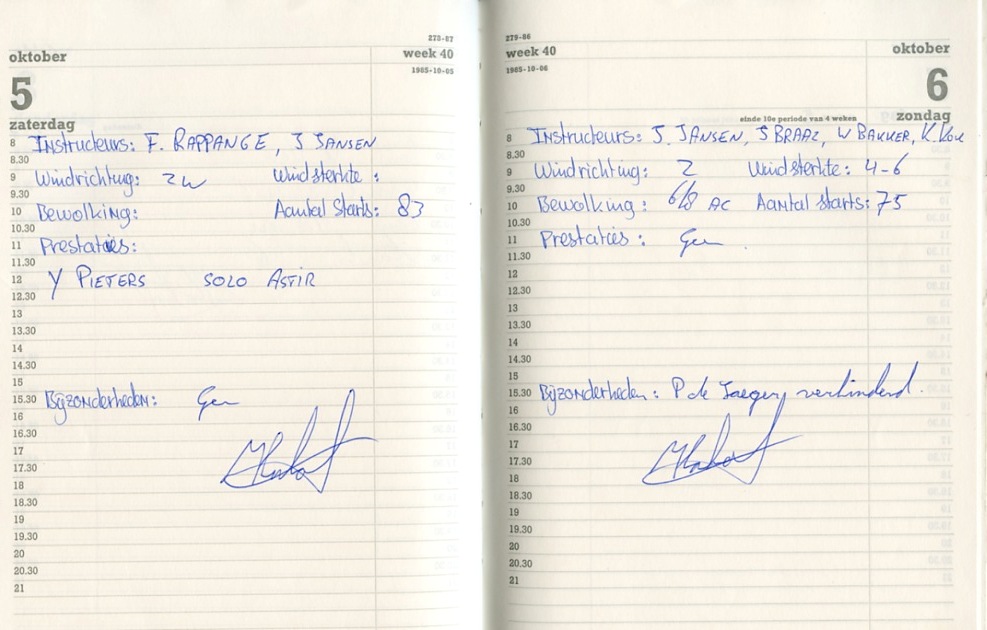 278-87
oktober
week 40
1985-10-05
5
zaterdag
8 Instructeurs: F. RAPPANGE, J JANSEN
8.30
9 Windrichting: ZW Windsterkte:
9.30
10 Bewolking: Aantal Starts: 83
10.30
11 Prestaties:
11.30
12 Y PIETERS SOLO ASTIR
12.30
13
13.30
14
14.30
15
15.30 Bijzonderheden: Geen
16
16.30
17
17.30
18
18.30
19
19.30
20
20.30
21
279-86
week 40
oktober
1985-10-06
6
einde 10e periode van 4 weken
zondag
8 Instructeurs: J. JANSEN, J BRAAZ, W BAKKER, K. Kok
8.30
9 Windrichting: Z Windsterkte: 4-6
9.30
10 Bewolking: 6/8 AC Aantal Starts: 75
10.30
11 Prestaties: Geen.
11.30
12
12.30
13
13.30
14
14.30
15
15.30 Bijzonderheden: P de Jaeger, verhinderd.
16
16.30
17
17.30
18
18.30
19
19.30
20
20.30
21